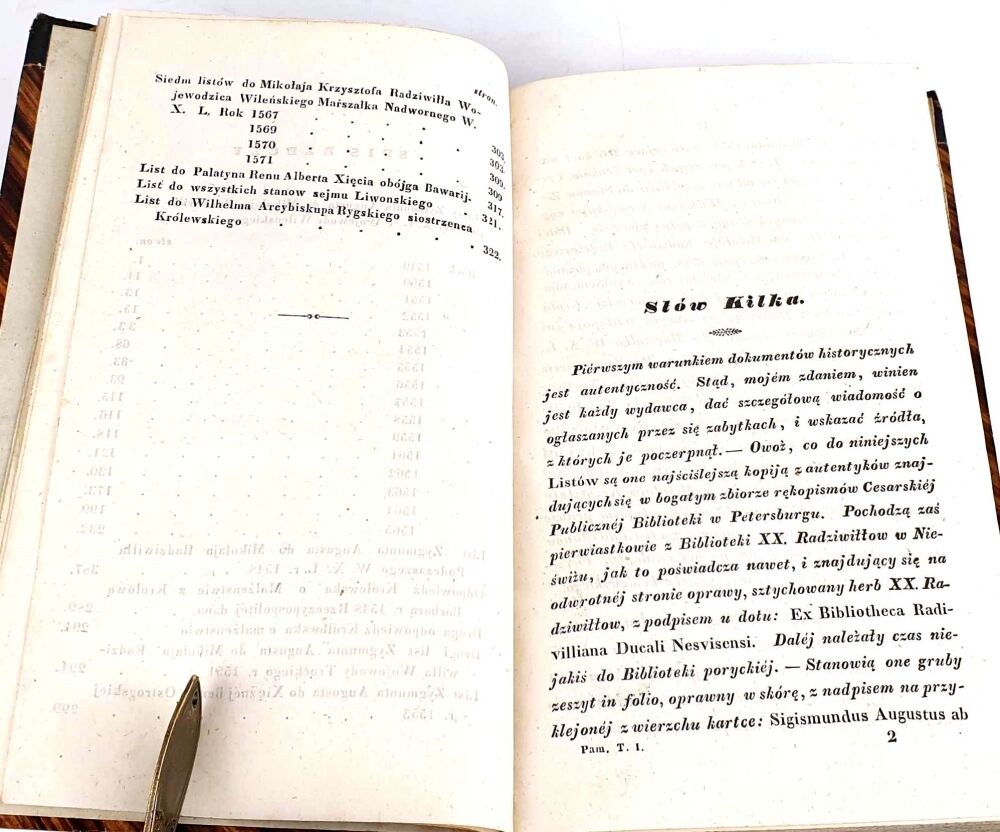 stron.
Siedm listów do Mikołaja Krzysztofa Radziwiłła Wo-
jewodzica Wileńskiego Marszałka Nadwornego W.
X. L. Rok 1567 . . . . . 303.
1569 . . . . . 303.
1570 . . . . . 309.
1571 . . . . . 309
List do Palatyna Renu Alberta Xięcia obójga Bawarij. 317.
List do wszystkich stanow sejmu Liwonskiego . 321.
List do Wilhelma Arcybiskupa Rygskiego siostrzenca
Królewskiego . . . . . . . 322.
Słów Kilka.
Piérwszym warunkiem dokumentów historycznych
jest autentyczność. Stąd, mojém zdaniem, winien
jest każdy wydawca, dać szczegółową wiadomość o
ogłaszanych przez się zabytkach, i wskazać źródła,
z których je poczerpnął. — Owoż, co do niniejszych
Listów są one najściślejszą kopiją z autentyków znaj-
dujących się w bogatym zbiorze rękopismów Cesarskiéj
Publicznéj Biblioteki w Petersburgu. Pochodzą zaś
pierwiastkowie z Biblioteki XX. Radziwiłłow w Nie-
świżu, jak to poświadcza nawet, i znajdujący się na
odwrotnéj stronie oprawy, sztychowany herb XX. Ra-
dziwiłłow, z podpisem u dołu: Ex Bibliotheca Radi-
villiana Ducali Nesvisensi. Daléj należały czas nie-
jakiś do Biblioteki poryckiéj. — Stanowią one gruby
zeszyt in folio, oprawny w skórę, z nadpisem na przy-
klejonéj z wierzchu kartce: Sigismundus Augustus ab
Pam. T. I. 2